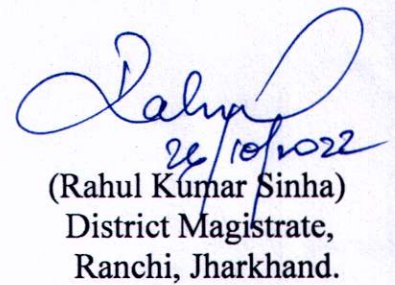 Rahul
26/10/2022
(Rahul Kumar Sinha)
District Magistrate,
Ranchi, Jharkhand.